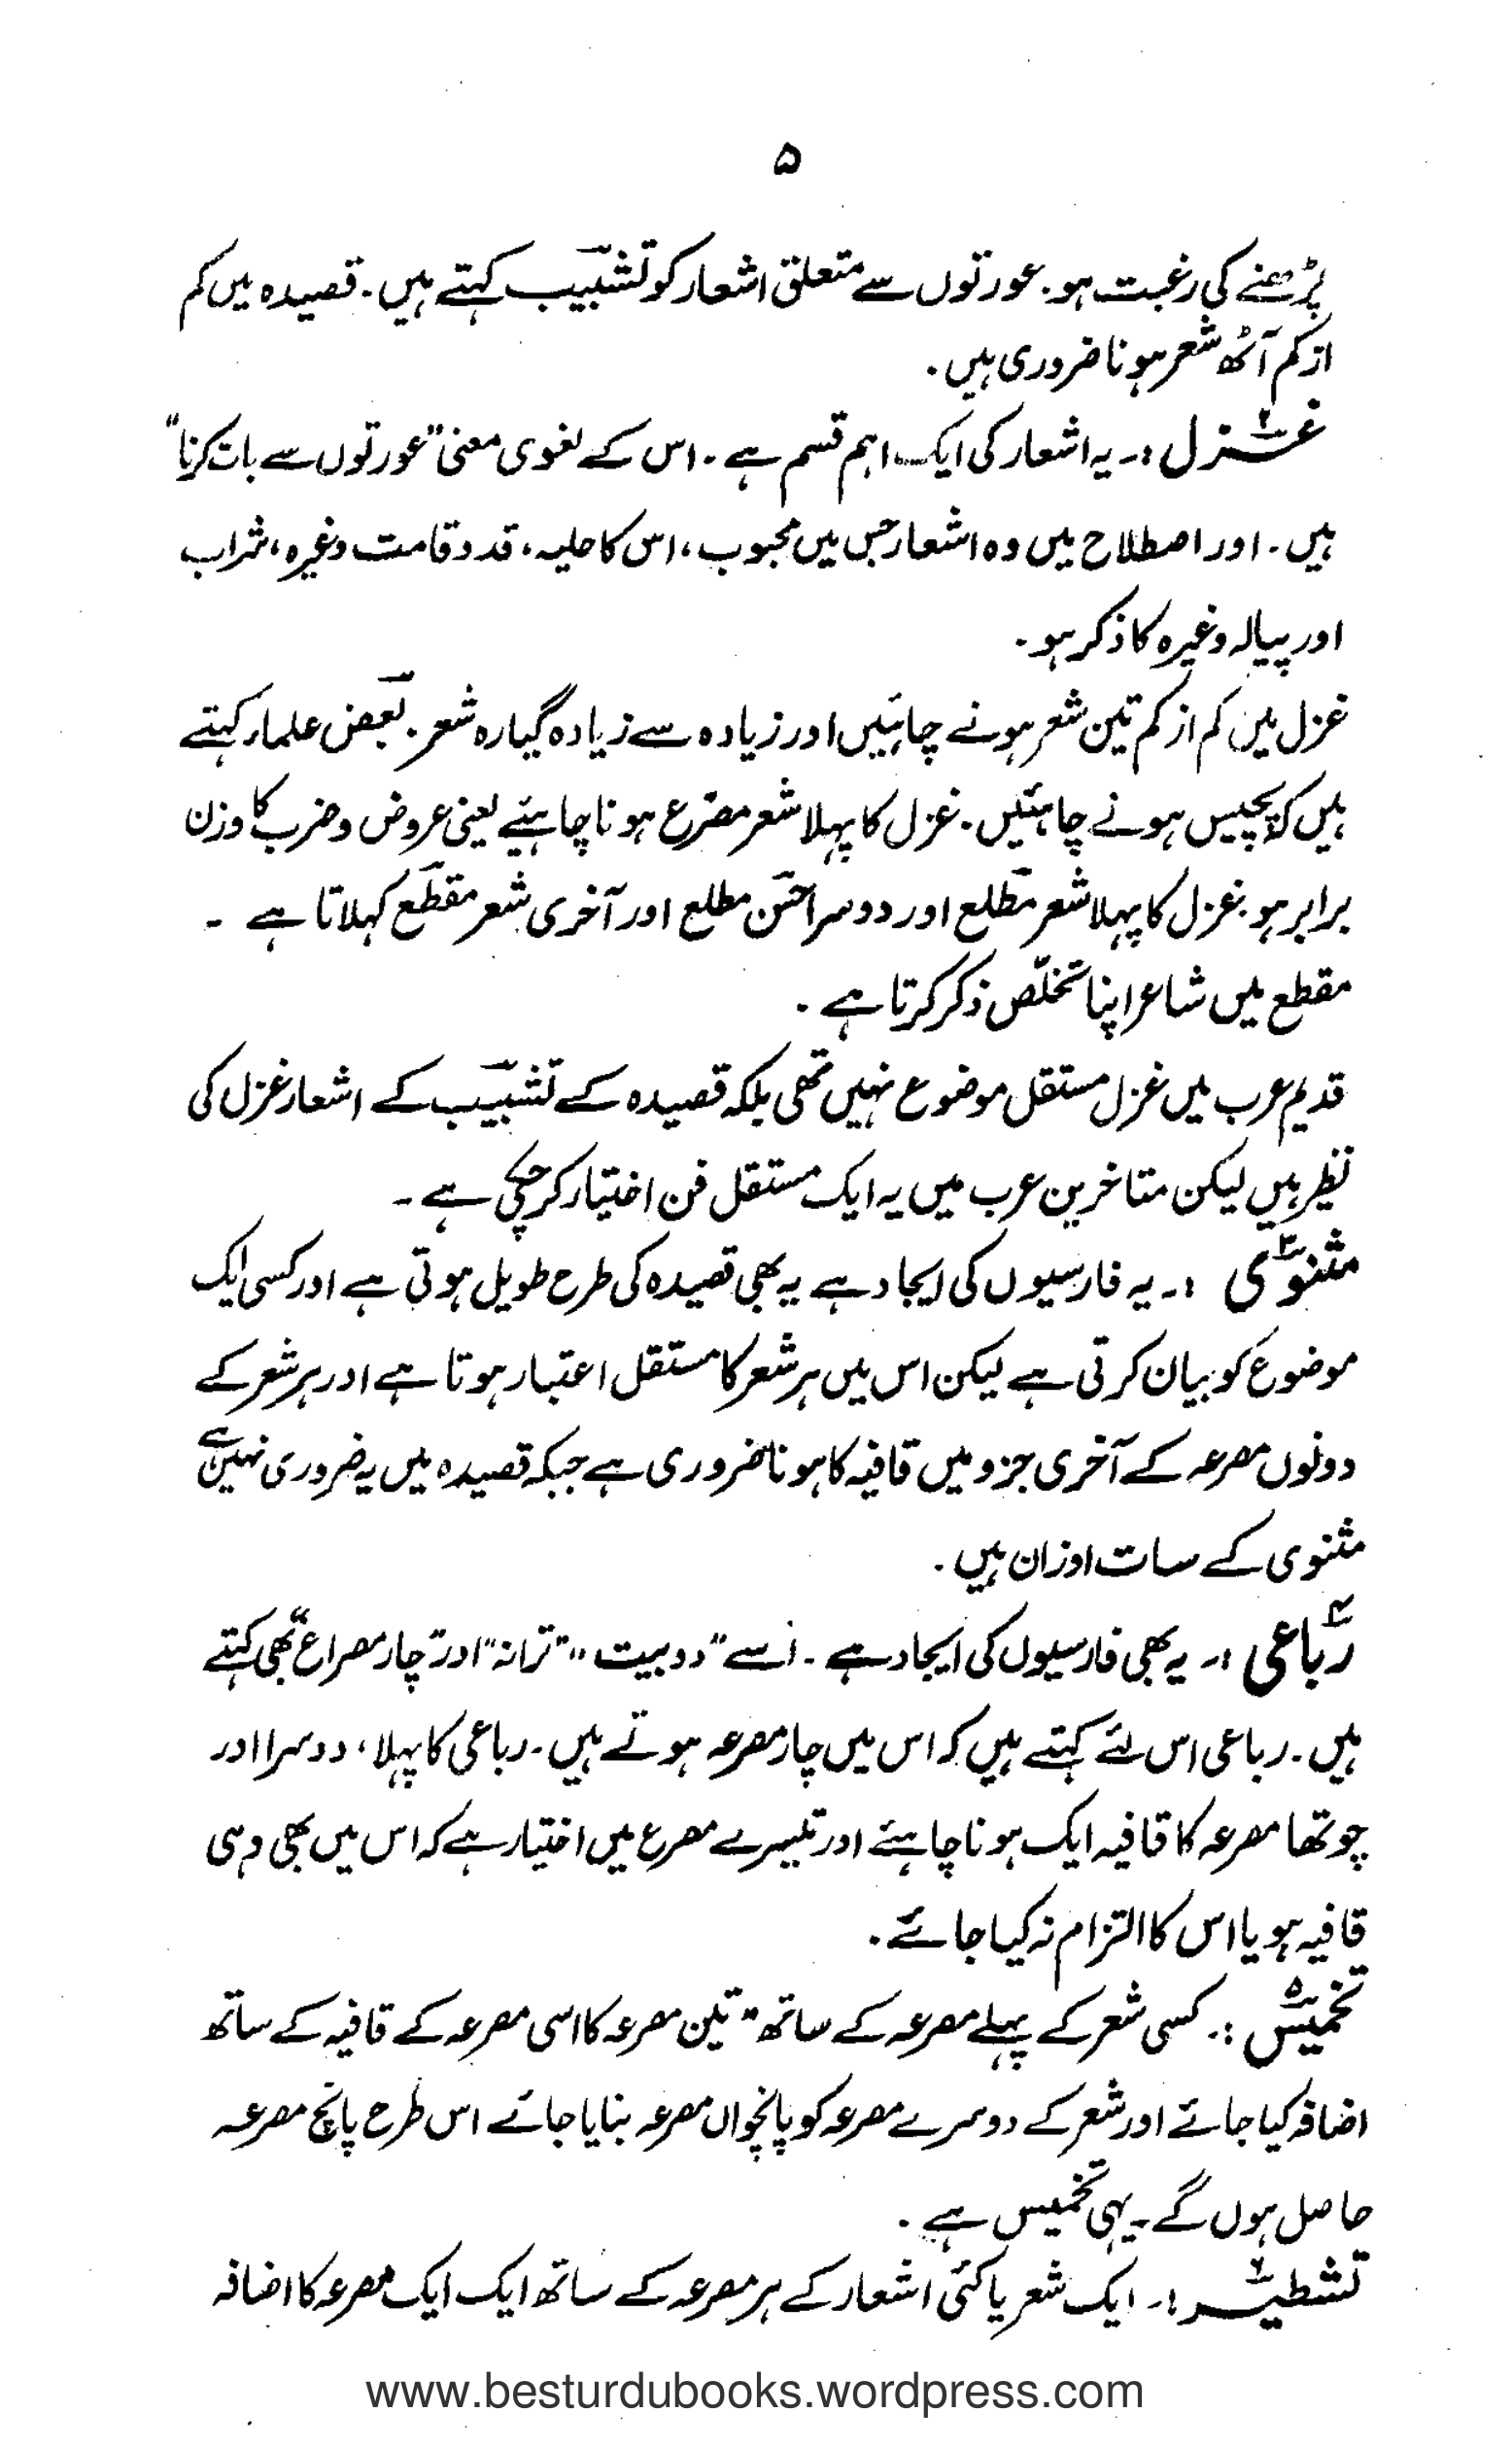 ۵
پڑھنے کی رغبت ہو۔ عورتوں سے متعلق اشعار کو تشبیب کہتے ہیں۔ قصیدہ میں کم
از کم آٹھ شعر ہونا ضروری ہیں۔
غزل :۔ یہ اشعار کی ایک اہم قسم ہے۔ اس کے لغوی معنی "عورتوں سے بات کرنا"
ہیں۔ اور اصطلاح میں وہ اشعار جس میں محبوب، اس کا حلیہ، قد و قامت وغیرہ، شراب
اور پیالہ وغیرہ کا ذکر ہو۔
غزل میں کم از کم تین شعر ہونے چاہئیں اور زیادہ سے زیادہ گیارہ شعر۔ بعض علماء کہتے
ہیں کہ پچیس ہونے چاہئیں۔ غزل کا پہلا شعر مصرّع ہونا چاہئیے یعنی عروض و ضرب کا وزن
برابر ہو۔ غزل کا پہلا شعر مطلع اور دوسرا حسن مطلع اور آخری شعر مقطع کہلاتا ہے ۔
مقطع میں شاعر اپنا تخلّص ذکر کرتا ہے۔
قدیم عرب میں غزل مستقل موضوع نہیں تھی بلکہ قصیدہ کے تشبیب کے اشعار غزل کی
نظیر ہیں لیکن متاخرین عرب میں یہ ایک مستقل فن اختیار کر چکی ہے ۔
مثنوی :۔ یہ فارسیوں کی ایجاد ہے یہ بھی قصیدہ کی طرح طویل ہوتی ہے اور کسی ایک
موضوع کو بیان کرتی ہے لیکن اس میں ہر شعر کا مستقل اعتبار ہوتا ہے اور ہر شعر کے
دونوں مصرعہ کے آخری جزو میں قافیہ کا ہونا ضروری ہے جبکہ قصیدہ میں یہ ضروری نہیں ہے
مثنوی کے سات اوزان ہیں۔
رباعی :۔ یہ بھی فارسیوں کی ایجاد ہے ۔ اُسے "دو بیت" "ترانہ" اور "چار مصراع" بھی کہتے
ہیں۔ رباعی اس لئے کہتے ہیں کہ اس میں چار مصرعہ ہوتے ہیں۔ رباعی کا پہلا، دوسرا اور
چوتھا مصرعہ کا قافیہ ایک ہونا چاہئے اور تیسرے مصرع میں اختیار ہے کہ اس میں بھی وہی
قافیہ ہو یا اس کا التزام نہ کیا جائے۔
تخمیس :۔ کسی شعر کے پہلے مصرعہ کے ساتھ "تین مصرعہ کا اسی مصرعہ کے قافیہ کے ساتھ
اضافہ کیا جائے اور شعر کے دوسرے مصرعہ کو پانچواں مصرعہ بنایا جائے اس طرح پانچ مصرعہ
حاصل ہوں گے۔ یہی تخمیس ہے۔
تشطیر :۔ ایک شعر یا کئی اشعار کے ہر مصرعہ کے ساتھ ایک ایک مصرعہ کا اضافہ
www.besturdubooks.wordpress.com